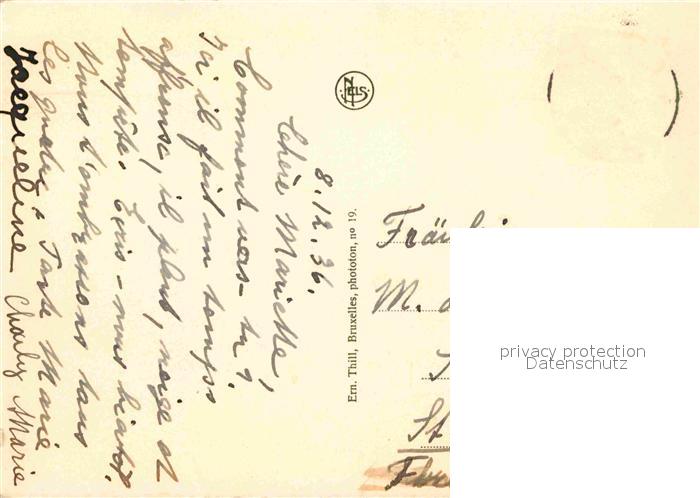 8.12.36.
Chère Mariette,
Comment vas-tu?
Ici il fait un temps
affreuse, il pleut, neige et
tempête. Ecris-nous bientôt
Nous t'embrassons tous
les quatre Tante Marie
Jacqueline Charly Marie
NELS
Ern. Thill, Bruxelles, phototon, nº 19.
M.
St
privacy protection
Datenschutz